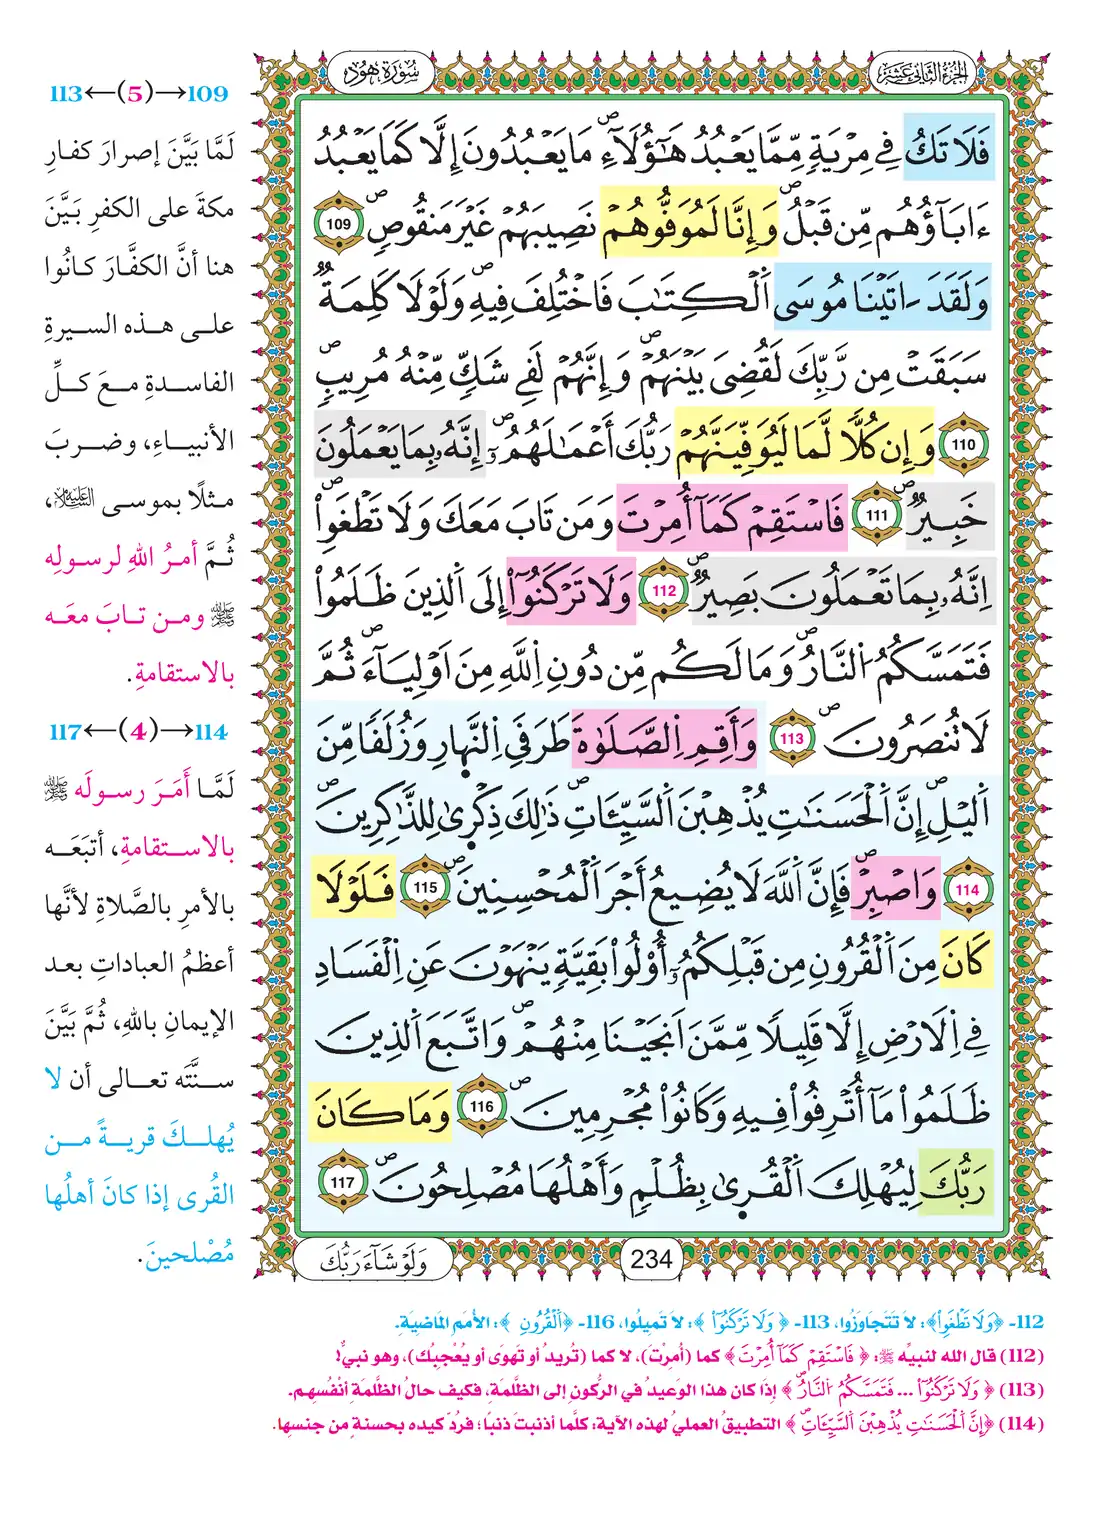 الجزء الثاني عشر
سورة هود
فَلَا تَكُ فِي مِرْيَةٍ مِّمَّا يَعْبُدُ هَٰٓؤُلَآءِ مَا يَعْبُدُونَ إِلَّا كَمَا يَعْبُدُ
ءَابَآؤُهُم مِّن قَبْلُ وَإِنَّا لَمُوَفُّوهُمْ نَصِيبَهُمْ غَيْرَ مَنقُوصٍ 109
وَلَقَدَ ـاتَيْنَا مُوسَى اَلْكِتَٰبَ فَاخْتُلِفَ فِيهِ وَلَوْلَا كَلِمَةٌ
سَبَقَتْ مِن رَّبِّكَ لَقُضِيَ بَيْنَهُمْ وَإِنَّهُمْ لَفِي شَكٍّ مِّنْهُ مُرِيبٍ
110 وَإِن كُلًّا لَّمَا لَيُوَفِّيَنَّهُمْ رَبُّكَ أَعْمَٰلَهُمُۥٓ إِنَّهُۥ بِمَا يَعْمَلُونَ
خَبِيرٌ 111 فَاسْتَقِمْ كَمَآ أُمِرْتَ وَمَن تَابَ مَعَكَ وَلَا تَطْغَوِاْ
اِنَّهُۥ بِمَا تَعْمَلُونَ بَصِيرٌ 112 وَلَا تَرْكَنُوٓاْ إِلَى اَلذِينَ ظَلَمُواْ
فَتَمَسَّكُمُ اُلنَّارُ وَمَا لَكُم مِّن دُونِ اِللَّهِ مِنَ اَوْلِيَآءَ ثُمَّ
لَا تُنصَرُونَ 113 وَأَقِمِ اِلصَّلَوٰةَ طَرَفَيِ اِلنَّهارِ وَزُلَفًا مِّنَ
اَليْلِ إِنَّ اَلْحَسَنَٰتِ يُذْهِبْنَ اَلسَّيِّـَٔاتِ ذَٰلِكَ ذِكْرَىٰ لِلذَّٰكِرِينَ
114 وَاصْبِرْ فَإِنَّ اَللَّهَ لَا يُضِيعُ أَجْرَ اَلْمُحْسِنِينَ 115 فَلَوْلَا
كَانَ مِنَ اَلْقُرُونِ مِن قَبْلِكُمُۥٓ أُوْلُواْ بَقِيَّةٍ يَنْهَوْنَ عَنِ اِلْفَسَادِ
فِي اِلَارْضِ إِلَّا قَلِيلًا مِّمَّنَ اَنجَيْنَا مِنْهُمْ وَاتَّبَعَ اَلذِينَ
ظَلَمُواْ مَآ أُتْرِفُواْ فِيهِ وَكَانُواْ مُجْرِمِينَ 116 وَمَا كَانَ
رَبُّكَ لِيُهْلِكَ اَلْقُرَىٰ بِظُلْمٍ وَأَهْلُهَا مُصْلِحُونَ 117
234
وَلَوْ شَآءَ رَبُّكَ
109→(5)←113
لَمَّا بَيَّنَ إصرارَ كفارِ
مكةَ على الكفرِ بَيَّنَ
هنا أنَّ الكفَّارَ كانُوا
على هذه السيرةِ
الفاسدةِ معَ كلِّ
الأنبياءِ، وضربَ
مثلًا بموسى عليه السلام،
ثُمَّ أمرُ اللهِ لرسولِه
ﷺ ومن تابَ معَه
بالاستقامةِ.
114→(4)←117
لَمَّا أَمَرَ رسولَه ﷺ
بالاستقامةِ، أتبَعَه
بالأمرِ بالصَّلاةِ لأنَّها
أعظمُ العباداتِ بعد
الإيمانِ باللهِ، ثُمَّ بَيَّنَ
سنَّتَه تعالى أن لا
يُهلكَ قريةً من
القُرى إذا كانَ أهلُها
مُصْلحينَ.
112- ﴿وَلَا تَطْغَوِاْ﴾: لا تَتَجَاوَزُوا، 113- ﴿وَلَا تَرْكَنُوٓاْ﴾: لا تَميلُوا، 116- ﴿اَلْقُرُونِ﴾: الأمَم الماضيَة.
(112) قال الله لنبيِّه ﷺ: ﴿فَاسْتَقِمْ كَمَآ أُمِرْتَ﴾ كما (أُمِرْتَ)، لا كما (تُريدُ أو تَهوَى أو يُعْجِبُك)، وهو نبيٌّ!
(113) ﴿وَلَا تَرْكَنُوٓاْ ... فَتَمَسَّكُمُ اُلنَّارُ﴾ إذا كان هذا الوَعيدُ في الرُّكونِ إلى الظَّلَمة، فكيف حالُ الظَّلَمةِ أنْفُسِهم.
(114) ﴿إِنَّ اَلْحَسَنَٰتِ يُذْهِبْنَ اَلسَّيِّـَٔاتِ﴾ التطبيقُ العمليُّ لهذه الآية: كلَّما أذنبتَ ذنبًا؛ فرُدَّ كيدَه بحسنةٍ من جنسِها.